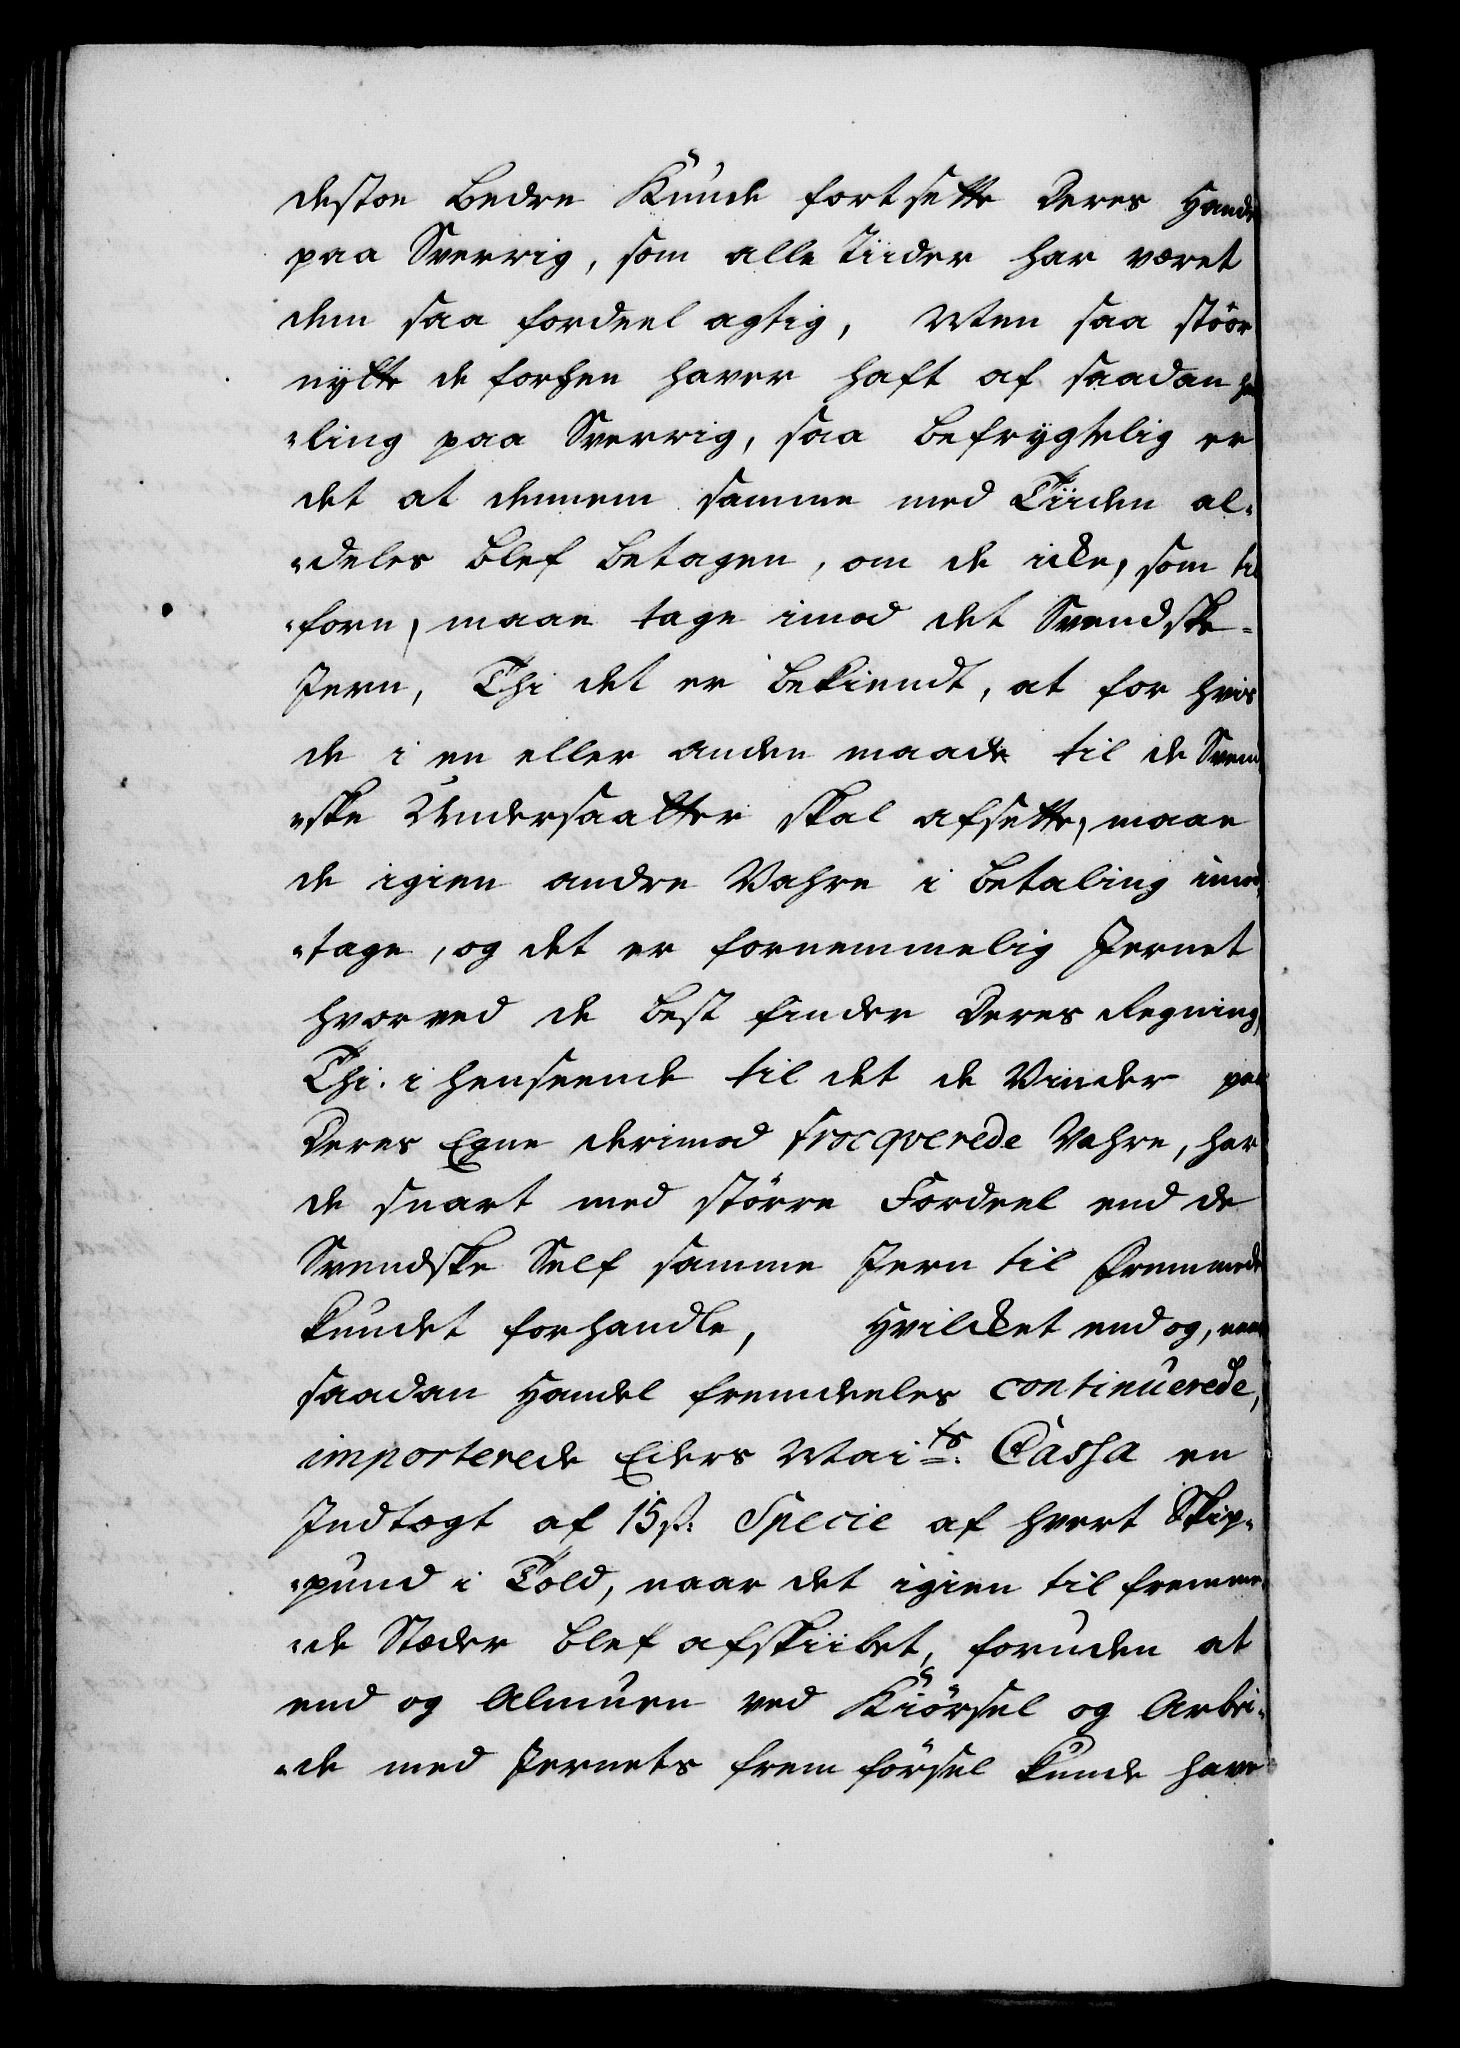 destoe bedre Kunde fortsette deres Hande
paa Sverrig, som alle Tiider har veret
dem saa fordeel agtig, Men saa stöor
nytte de forhen haver haft af saadan
„ling paa Sverrig, saa befrygtelig er
det at dennem samme med Tiiden al„
„deles blef betagen, om de icke, som til
„forn, maae tage imod det Svendske„
Jern, Thi det er bekiendt, at for hvis
de i en eller anden maade til de Svend
„ske Undersaatter skal afsette, maae
de igien andre Vahre i betaling imod
„tage, og det er fornemmelig Jernet
hvorved de best finder deres Regning,
Thi i henseende til det de Vinder paa
deres Egne derimod trocqverede Vahre, har
de snart med större Fordeel end de
Svendske Self samme Jern til fremmede
kundet forhandle, Hvilcket end og, naar
saadan Handel fremdeles continuerede,
importerede Eders Mai^ts. Cassa en
Indtægt af 15 s: Specie af hvert Skip„
„pund i Told, naar det igien til fremme„
„de Stæder blef afskiibet, foruden at
end og Almuen ved Kiörsel og Arbei„
„de med Jernets frem försel kunde have